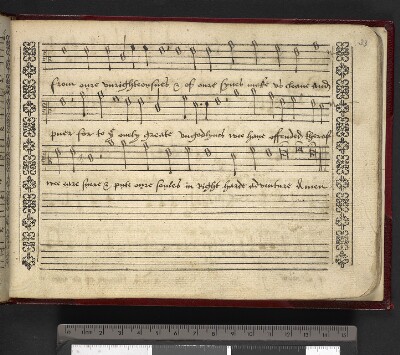 33
from oure unrighteousnes & of oure synes make us cleane and
puer for to yͤ only greate ungodlynes wee haue offended therof
wee are suere & putt oure soules in right harde adventure Amen